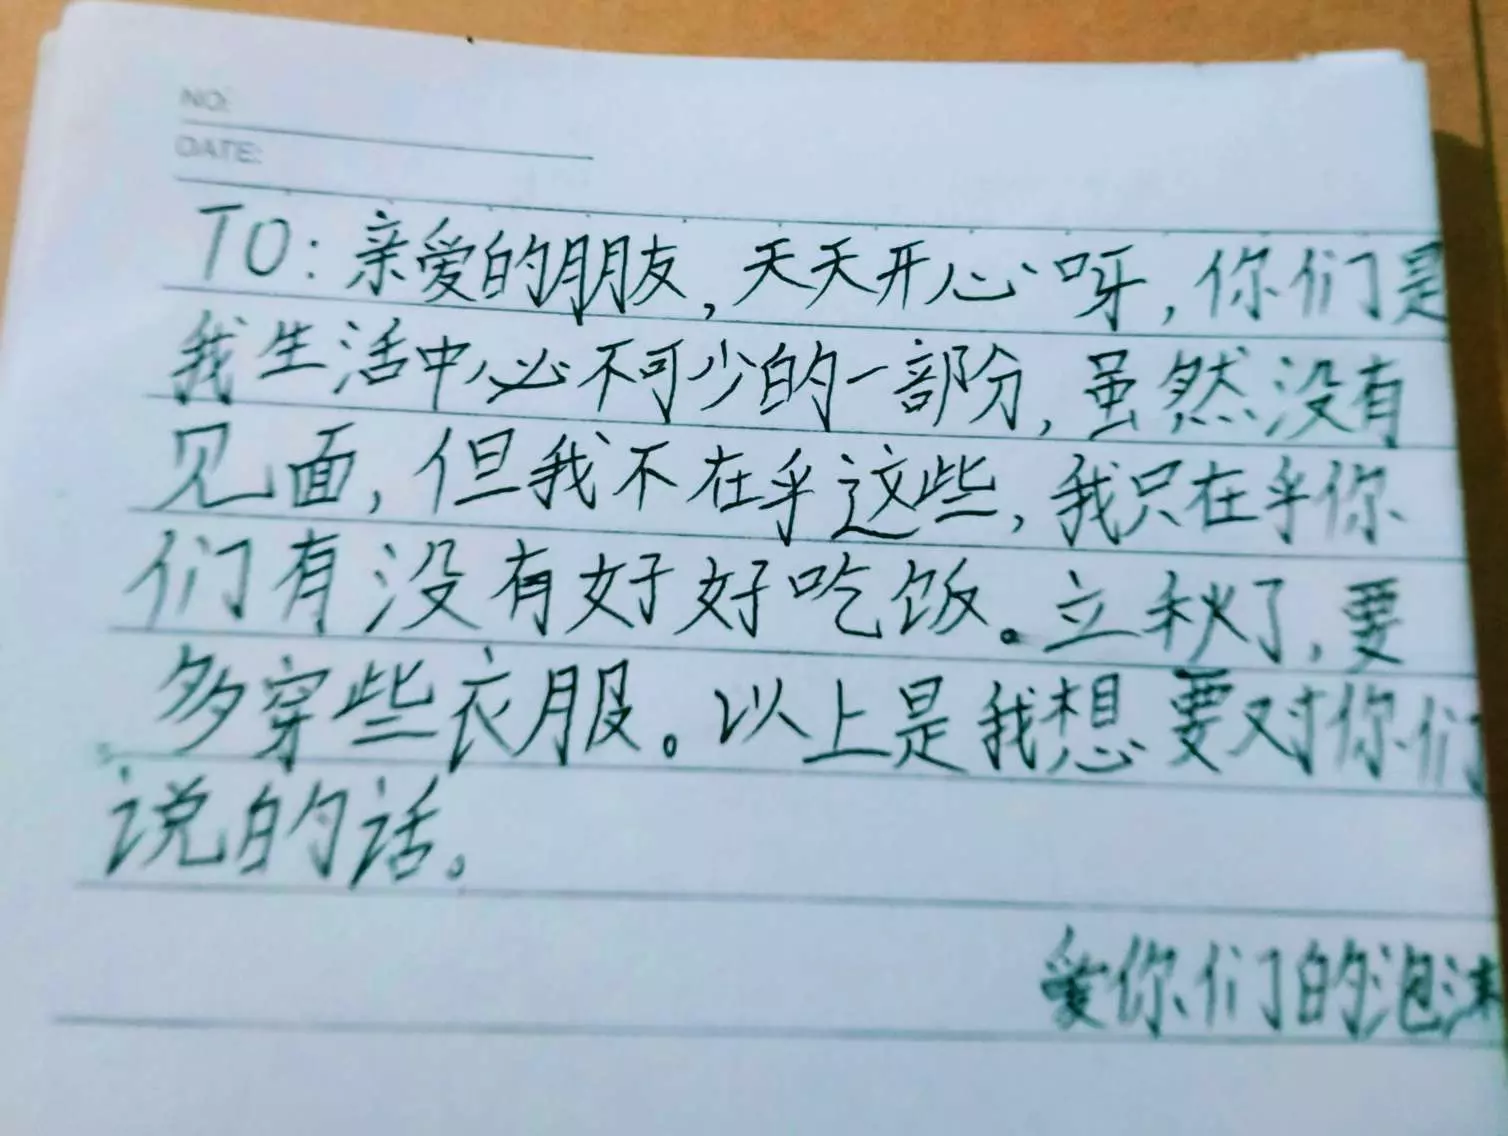 NO:
DATE:
TO:亲爱的朋友,天天开心呀,你们是
我生活中必不可少的一部分,虽然没有
见面,但我不在乎这些,我只在乎你
们有没有好好吃饭。立秋了,要
多穿些衣服。以上是我想要对你们
说的话。
爱你们的泡沫